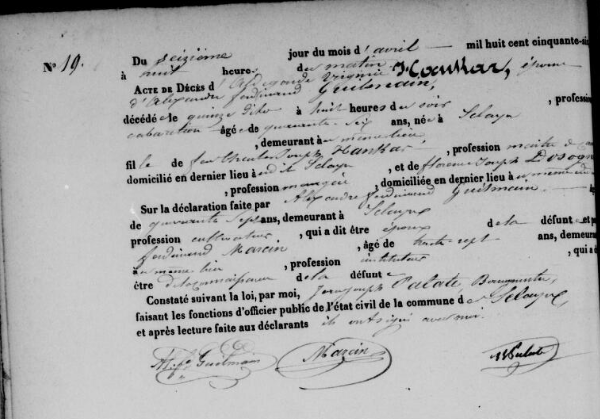 N° 19. Du seizième jour du mois d'avril mil huit cent cinquante-si
à huit heures du matin
ACTE DE DÉCÈS d' Virginie Hankar, épouse
d'Alexandre ferdinand Guilmain,
décédé le quinze dito à huit heures du soir, profession
cabaretière âgée de quarante six ans, née à Selayn
, demeurant à même lieu
fille de feu Joseph Hankar, profession maitre de
domicilié en dernier lieu à dit Selayn, et de florence Joseph
, profession ménagère, domiciliée en dernier lieu à
Sur la déclaration faite par Alexandre ferdinand Guilmain
de quarante sept ans, demeurant à Selayn
profession cultivateur, qui a dit être époux de la défunte et p
ferdinand Marcin, âgé de trente sept ans, demeura
au même lieu, profession instituteur, qui a d
être de connaissance de la défunte
Constaté suivant la loi, par moi, Joseph Palate, Bourgmestre,
faisant les fonctions d'officier public de l'état civil de la commune de Selayn,
et après lecture faite aux déclarants ils ont signé avec moi.
Guilmain Marcin Palate